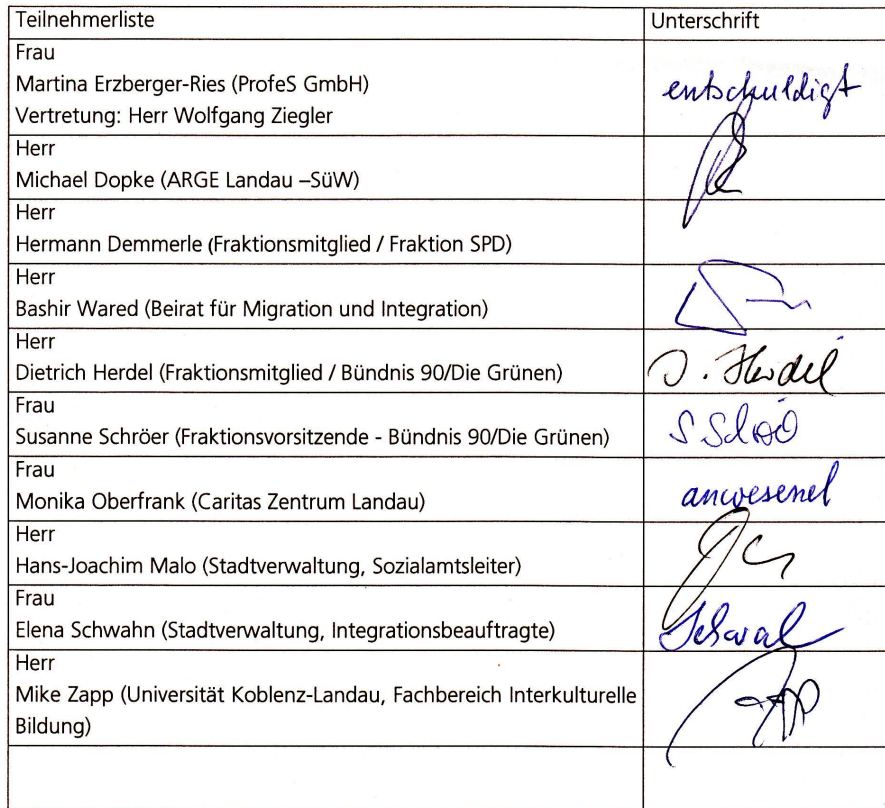 Teilnehmerliste Unterschrift
Frau
Martina Erzberger-Ries (ProfeS GmbH) entschuldigt
Vertretung: Herr Wolfgang Ziegler
Herr
Michael Dopke (ARGE Landau –SüW)
Herr
Hermann Demmerle (Fraktionsmitglied / Fraktion SPD)
Herr
Bashir Wared (Beirat für Migration und Integration)
Herr
Dietrich Herdel (Fraktionsmitglied / Bündnis 90/Die Grünen) D. Herdel
Frau
Susanne Schröer (Fraktionsvorsitzende - Bündnis 90/Die Grünen)
Frau
Monika Oberfrank (Caritas Zentrum Landau) anwesend
Herr
Hans-Joachim Malo (Stadtverwaltung, Sozialamtsleiter)
Frau
Elena Schwahn (Stadtverwaltung, Integrationsbeauftragte)
Herr
Mike Zapp (Universität Koblenz-Landau, Fachbereich Interkulturelle
Bildung)